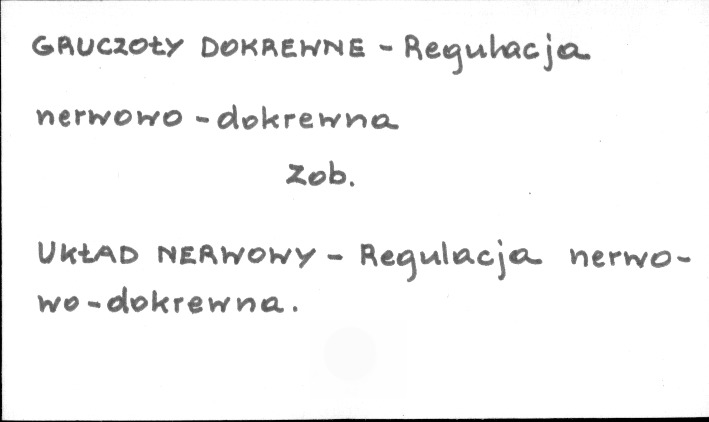 GRUCZOŁY DOKREWNE - Regulacja
nerwowo - dokrewna
Zob.
UKŁAD NERWOWY - Regulacja nerwo-
wo - dokrewna.